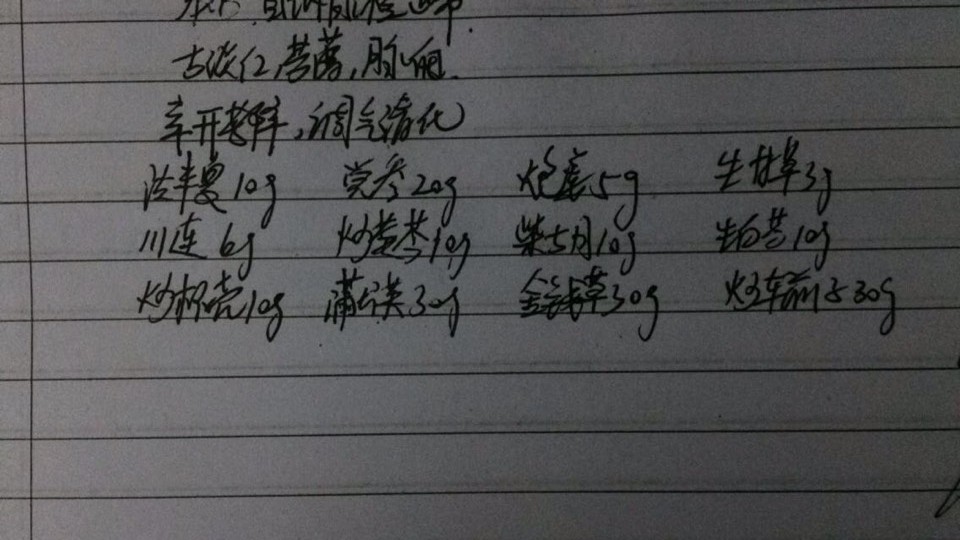 舌淡红,苔薄,脉细.
辛开苦降,调气清化
法半夏10g 党参20g 炮姜5g 生甘草3g
川连6g 炒黄芩10g 柴胡10g 生白芍10g
炒枳壳10g 蒲公英30g 金钱草30g 炒车前子30g